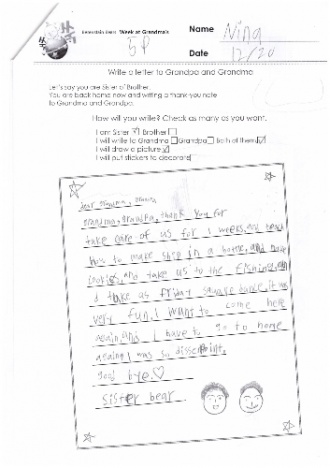 Berenstain Bears Week at Grandma's
5P
Name Nina
Date 12/20
Write a letter to Grandpa and Grandma
Let's say you are Sister or Brother.
You are back home now and writing a thank you note
to Grandma and Grandpa.
How will you write? Check as many as you want.
I am Sister ☑ Brother ☐
I will write to Grandma ☐ Grandpa ☐ both of them ☑
I will draw a picture ☑
I will put stickers to decorate ☐
Dear
Grandma, Grandpa, thank you for
take care of us for 1 weeks, and teach
how to make ship in a bottle, and make
cookies, and take us to the fishing, an
d take us friday square dance, it was
very fun, I want to come here
again, and I have to go to home
again, I was so dissepoint.
good bye.♡
Sister bear